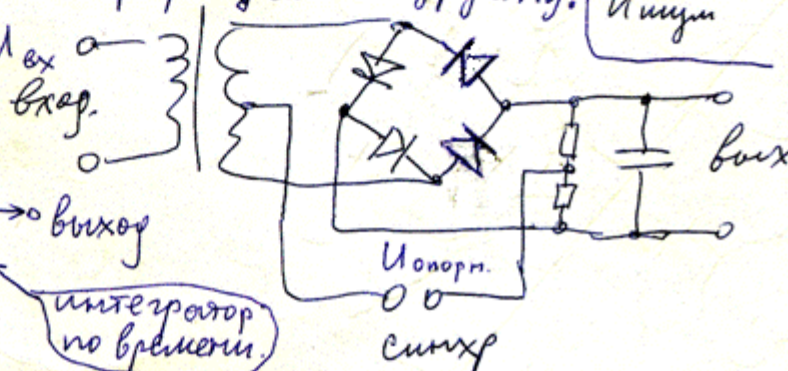 U шум
Uвх
вход.
вых
→ выход
Uопорн.
интегратор
по времени.
синхр